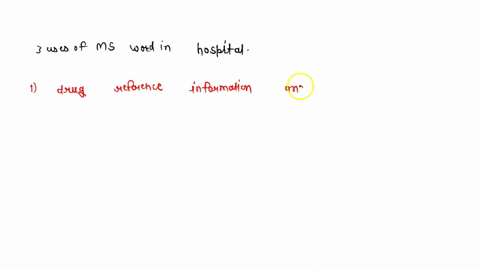 3 uses of MS word in hospital.
1) drug reference information an